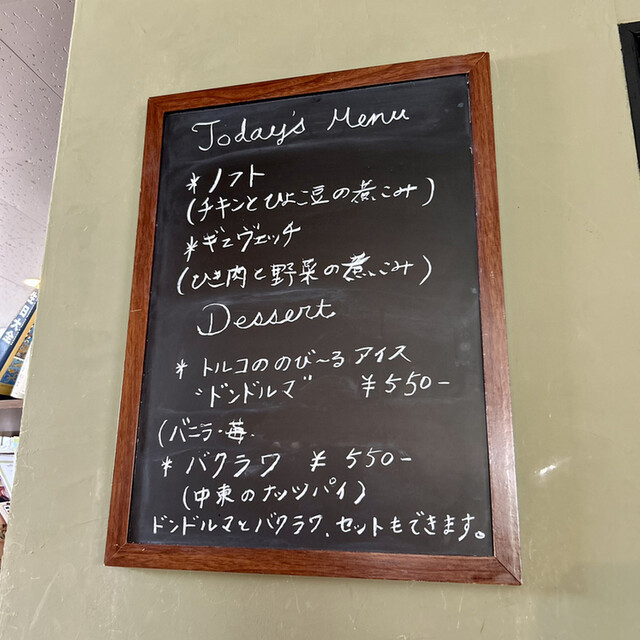 Today's Menu
*ノフト
(チキンとひよこ豆の煮こみ)
*ギュヴェッチ
(ひき肉と野菜の煮こみ)
Dessert
* トルコののび〜るアイス
"ドンドルマ" ¥550-
(バニラ・苺.
* バクラワ ¥550-
(中東のナッツパイ)
ドンドルマとバクラワ、セットもできます。